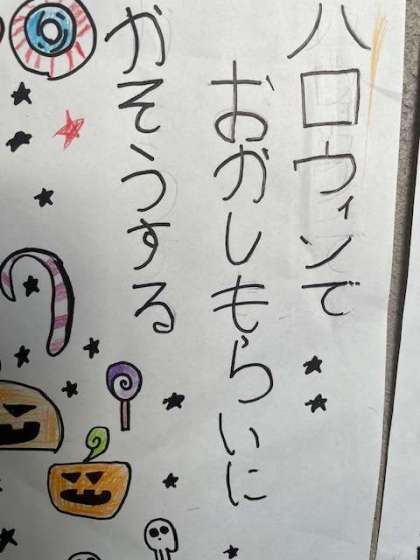 ハロウィンで
おかしもらいに
かそうする